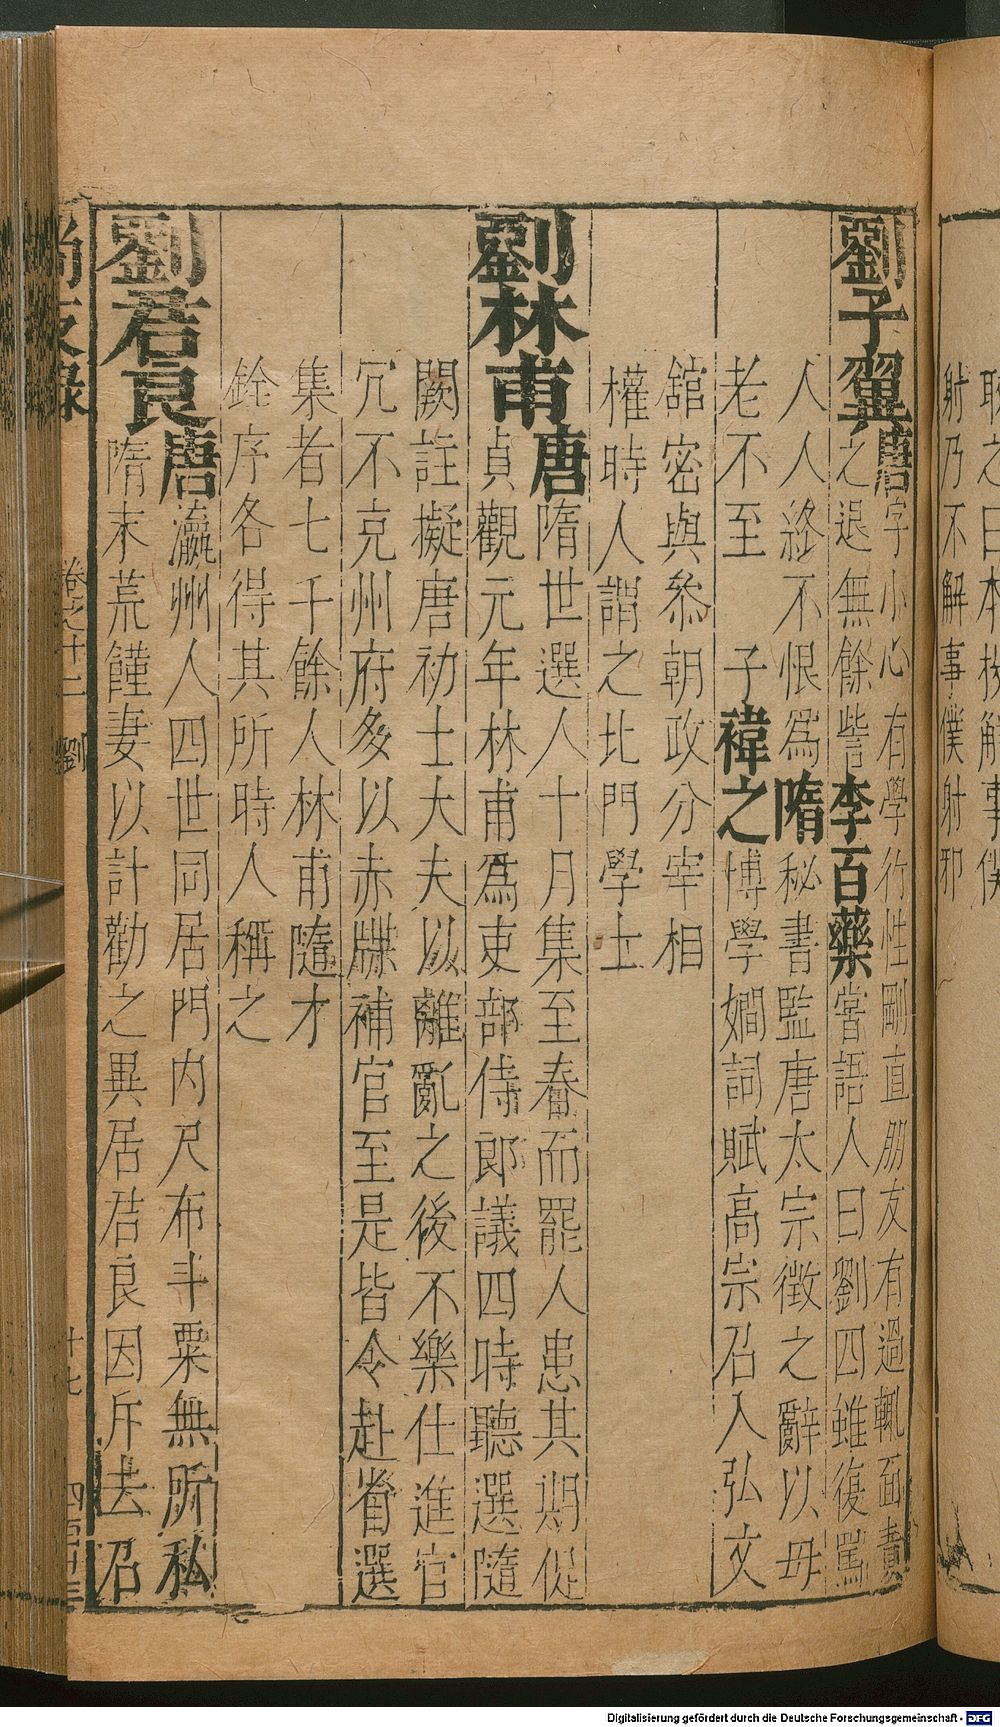 恥之曰本授解事僕
射乃不解事僕射邪
劉子翼唐字小心有學行性剛直朋友有過輒面責
之退無餘訾李百藥嘗語人曰劉四雖復罵
人人終不恨爲隋秘書監唐太宗徵之辭以母
老不至 子禕之博學嫺詞賦高宗召入弘文
舘密與叅朝政分宰相
權時人謂之北門學士
劉林甫唐隋世選人十月集至春而罷人患其期促
貞觀元年林甫爲吏部侍郎議四時聽選隨
闕註擬唐初士大夫以離亂之後不樂仕進官
冗不克州府多以赤牒補官至是皆令赴省選
集者七千餘人林甫隨才
銓序各得其所時人稱之
劉君良唐瀛州人四世同居門內尺布斗粟無所私
隋末荒饉妻以計勸之異居君良因斥去召
尚友錄 卷之十二 劉 十七
Digitalisierung gefördert durch die Deutsche Forschungsgemeinschaft - DFG